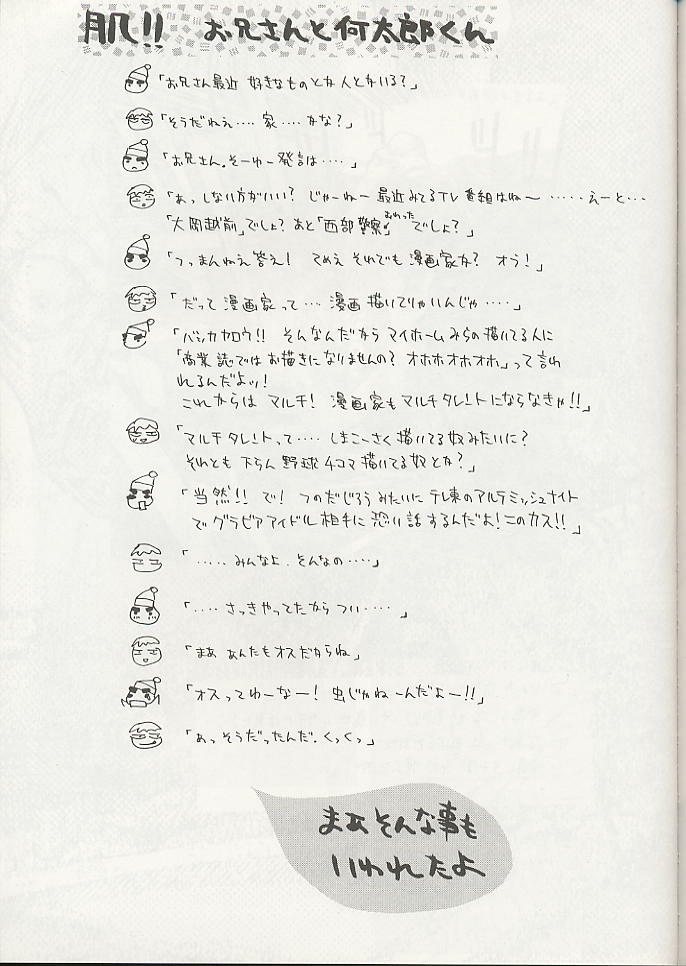 肌!! お兄さんと何太郎くん
「お兄さん最近 好きなものとか人とかいる?」
「そうだねえ‥‥ 家‥‥かな?」
「お兄さん。そーゆー発言は‥‥」
「あっしない方がいい? じゃーねー 最近みてるTV番組はね〜 ‥‥‥えーと‥‥
「大岡越前」でしょ? あと「西部警察」でしょ?」
おわった
「つっまんねえ答え! てめえ それでも漫画家か? オう!」
「だって 漫画家って‥‥ 漫画 描いてりゃいんじゃ‥‥」
「バッカヤロウ!! そんなんだから マイホームみらの描いてる人に
「商業誌ではお描きになりませんの? オホホオホオホ」って言わ
れるんだよッ!
これからは マルチ! 漫画家も マルチタレントにならなきゃ!!」
「マルチタレントって‥‥ しまこーさく描いてる奴みたいに?
それとも 下らん 野球4コマ描いてる奴とか?」
「当然!! で! つのだじろうみたいに テレ東のアルテミッシュナイト
でグラビアアイドル相手に恐い話するんだよ!このカス!!」
「‥‥‥みんなよ.そんなの‥‥」
「‥‥ さっきやってたから つい‥‥」
「まぁ あんたもオスだからね」
「オスってゆーなー! 虫じゃねーんだよー!!」
「あっそうだったんだ.くっくっ」
まぁそんな事も
いわれたよ